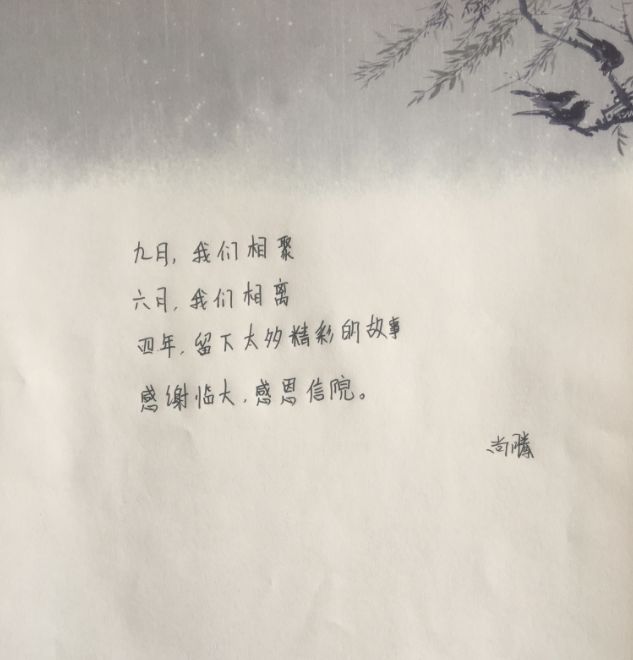 九月，我们相聚
六月，我们相离
四年，留下太多精彩的故事
感谢临大，感恩信院。
尚腾